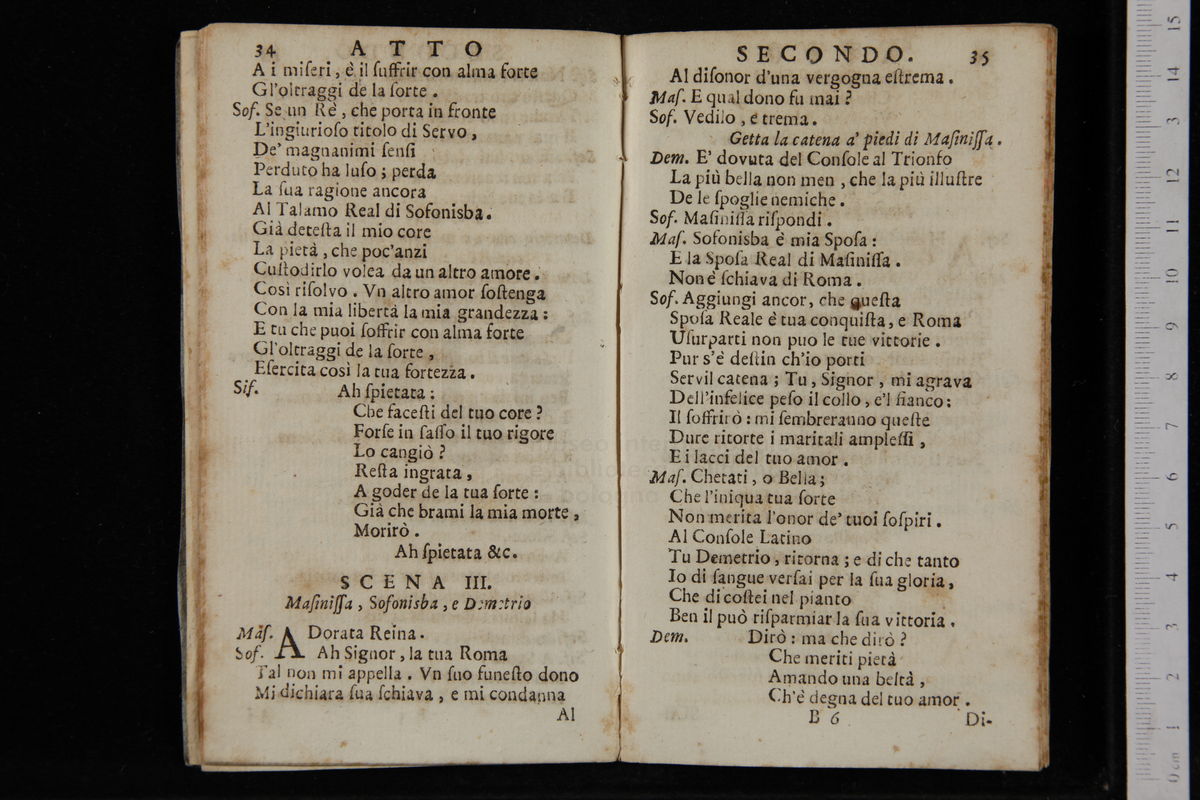 34 ATTO
A i miſeri, è il ſuffrir con alma forte
Gl'oltraggi de la ſorte.
Sof. Se un Rè, che porta in fronte
L'ingiurioſo titolo di Servo,
De' magnanimi ſenſi
Perduto ha luſo; perda
La ſua ragione ancora
Al Talamo Real di Sofonisba.
Già deteſta il mio core
La pietà, che poc'anzi
Cuſtodirlo volea da un altro amore.
Così riſolvo. Vn altro amor ſoſtenga
Con la mia libertà la mia grandezza:
E tu che puoi ſoffrir con alma forte
Gl'oltraggi de la ſorte,
Eſercita così la tua fortezza.
Sif. Ah ſpietata:
Che faceſti del tuo core?
Forſe in ſaſſo il tuo rigore
Lo cangiò?
Reſta ingrata,
A goder de la tua ſorte:
Già che brami la mia morte,
Morirò.
Ah ſpietata &c.
SCENA III.
Maſiniſſa, Sofonisba, e Demetrio
Maſ. ADorata Reina.
Sof. Ah Signor, la tua Roma
Tal non mi appella. Vn ſuo funeſto dono
Mi dichiara ſua ſchiava, e mi condanna
Al
SECONDO. 35
Al diſonor d'una vergogna eſtrema.
Maſ. E qual dono fu mai?
Sof. Vedilo, e trema.
Getta la catena a' piedi di Maſiniſſa.
Dem. E' dovuta del Conſole al Trionfo
La più bella non men, che la più illuſtre
De le ſpoglie nemiche.
Sof. Maſiniſſa riſpondi.
Maſ. Sofonisba è mia Spoſa:
E la Spoſa Real di Maſiniſſa.
Non è ſchiava di Roma.
Sof. Aggiungi ancor, che queſta
Spoſa Reale è tua conquiſta, e Roma
Uſurparti non puo le tue vittorie.
Pur s'è deſtin ch'io porti
Servil catena; Tu, Signor, mi agrava
Dell'infelice peſo il collo, e'l fianco:
Il ſoffrirò: mi ſembreranno queſte
Dure ritorte i maritali ampleſſi,
E i lacci del tuo amor.
Maſ. Chetati, o Bella;
Che l'iniqua tua ſorte
Non merita l'onor de' tuoi ſoſpiri.
Al Conſole Latino
Tu Demetrio, ritorna; e di che tanto
Io di ſangue verſai per la ſua gloria,
Che di coſtei nel pianto
Ben il può riſparmiar la ſua vittoria.
Dem. Dirò: ma che dirò?
Che meriti pietà
Amando una beltà,
Ch'è degna del tuo amor.
B 6 Di-